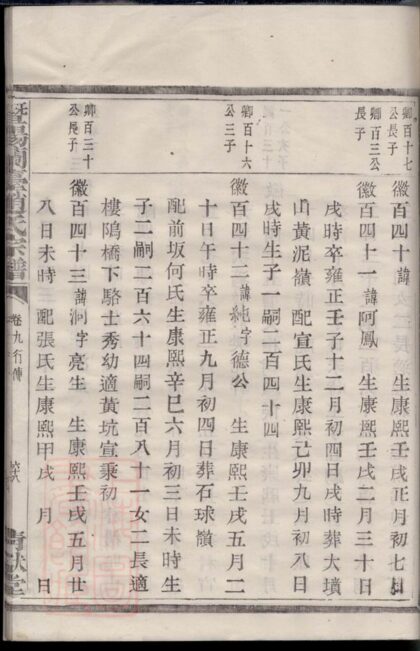 卿百十七
公長子
徽百四十 諱 生康熙壬戌正月初七日
卿百三公
長子
徽百四十一 諱阿鳳 生康熙壬戌二月三十日
戌時卒雍正壬子十二月初四日戌時葬大墳
山黃泥嶺 配宣氏生康熙己卯九月初八日
戌時生子一嗣二百四十四
卿百十六
公三子
徽百四十二 諱純字德公 生康熙壬戌五月二
十日午時卒雍正九月初四日葬石球嶺
配前坂何氏生康熙辛巳六月初三日未時生
子二嗣二百六十四嗣二百八十一女二長適
樓鳴橋下駱士秀幼適黃坑宣秉初
卿百三十
公長子
徽百四十三 諱泂字亮生 生康熙壬戌五月廿
八日未時 配張氏生康熙甲戌 月 日
宗譜
卷九行傳